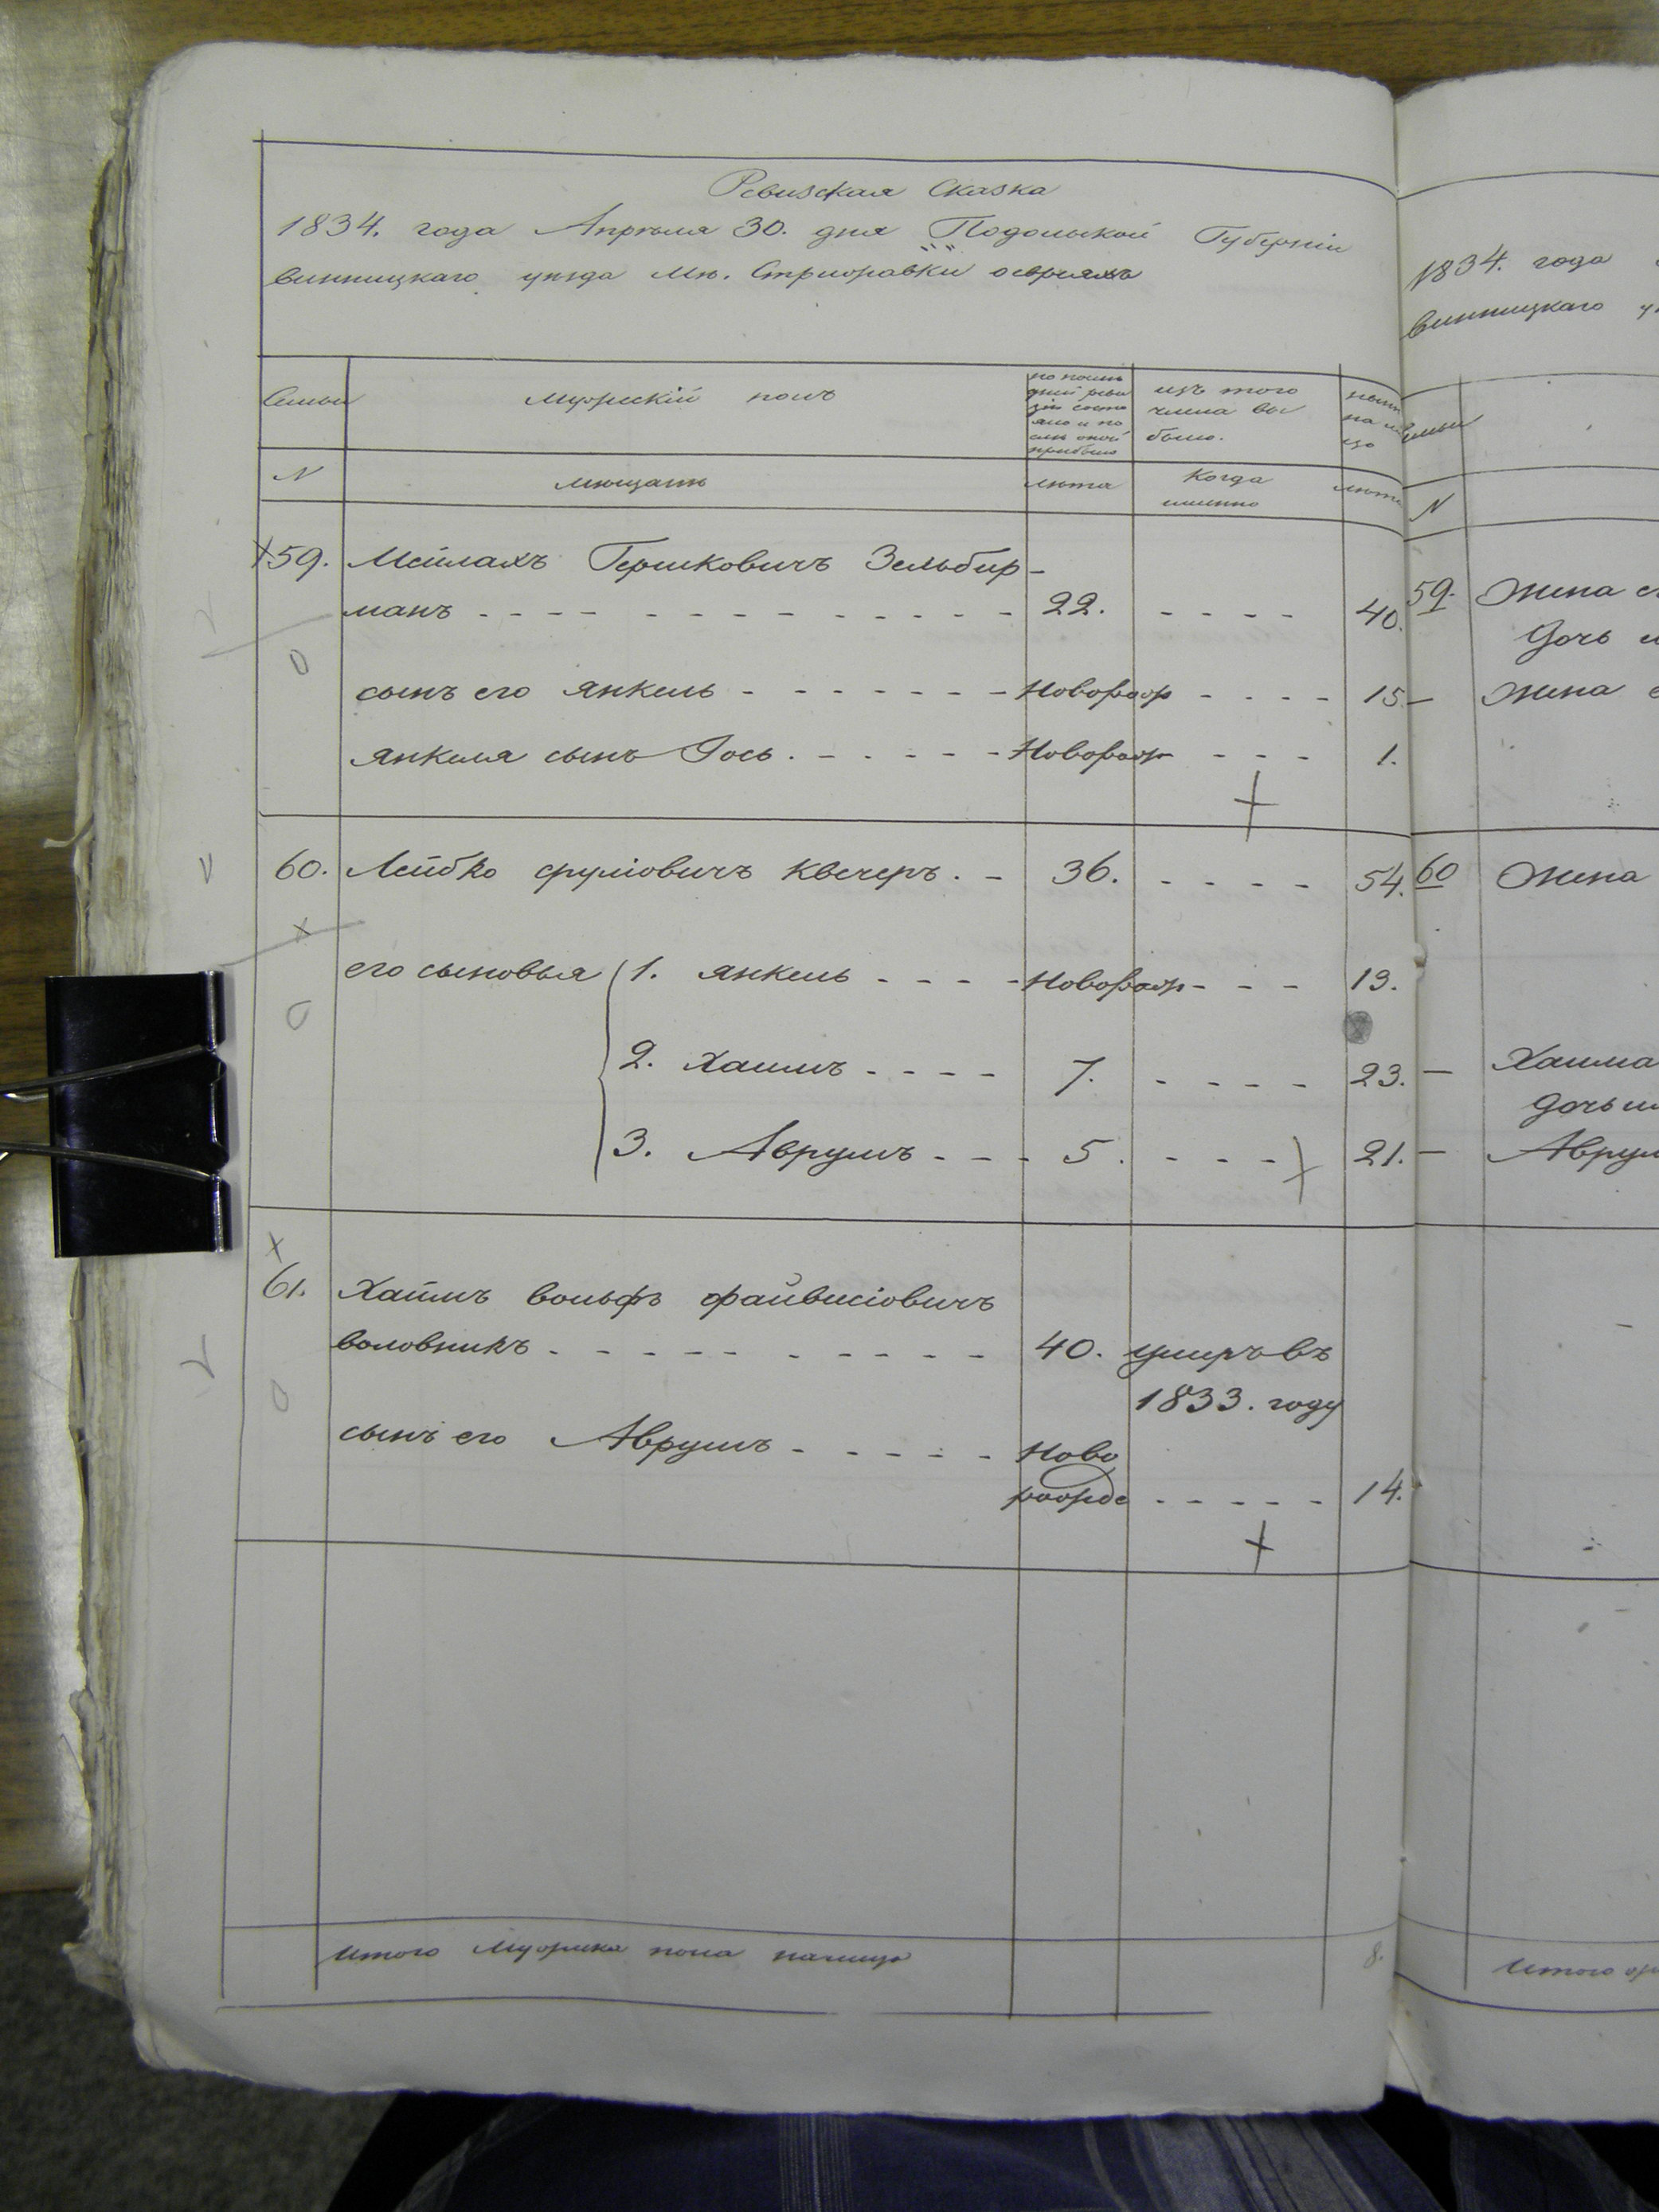 Ревизская Сказка
1834. года Апреля 30. дня Подольской Губерніи
винницкаго уезда Мѣ. Стрижавки о евреяхъ
Семьи
Мужескій полъ
по послѣ
дней реви
зіи состо
яло и по
слѣ оной
прибыло
изъ того
числа вы
было.
нынѣ
на ли
цо
N
мещане
лѣта
Когда
именно
лѣта
59. Мейлахъ Гершковичъ Зельбир-
манъ 22. 40.
сынъ его янкель Новорож 15.
янкеля сынъ Іось. Новорож 1.
60. Лейбко сруліовичъ Квечеръ. 36. 54.
его сыновья 1. янкель Новорож 13.
2. Хаимъ 7. 23.
3. Аврумъ 5. 21.
61. Хаимъ вольфъ файвишіовичъ
воловникъ 40. умеръ въ
1833. году
сынъ его Аврумъ Ново
рожде 14.
Итого Мужеска пола налицо 8.
1834. года
винницкаго
Семьи
N
59. Жена
Дочь
Жена
60 Жена
Хаима
Дочь
Аврум
Итого